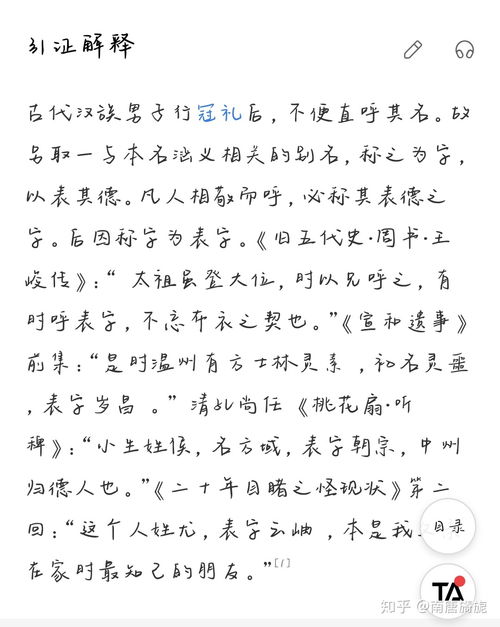 引证解释
古代汉族男子行冠礼后，不便直呼其名。故
另取一与本名涵义相关的别名，称之为字，
以表其德。凡人相敬而呼，必称其表德之
字。后因称字为表字。《旧五代史·周书·王
峻传》：“ 太祖虽登大位，时以兄呼之，有
时呼表字，不忘布衣之契也。”《宣和遗事》
前集：“是时温州有方士林灵素 ，初名灵噩
，表字岁昌 。”清孔尚任《桃花扇·听
稗》：“小生姓侯，名方域，表字朝宗，中州
归德人也。”《二十年目睹之怪现状》第二
回：“这个人姓尤，表字云岫 ，本是我
目录
在家时最知己的朋友。”[1]
TA
知乎 @南唐